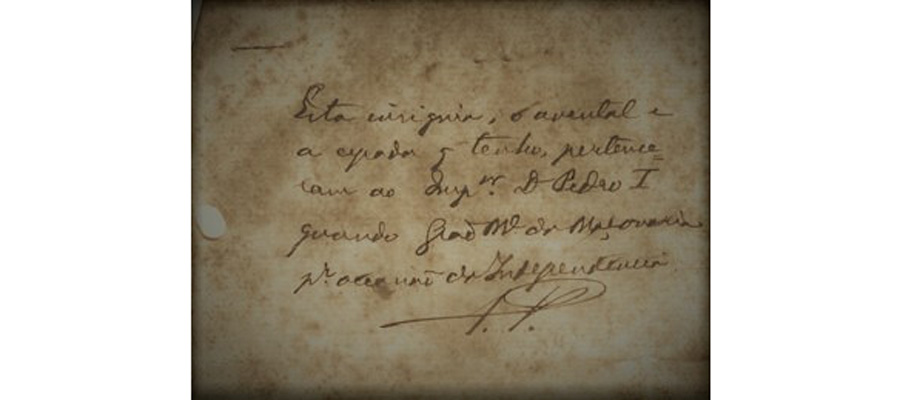 Esta insignia, o avental e
a espada q tenho, pertence=
ram ao Impor. D Pedro I
quando Grao Me. da Maçonaria
pr. occasião da Independencia